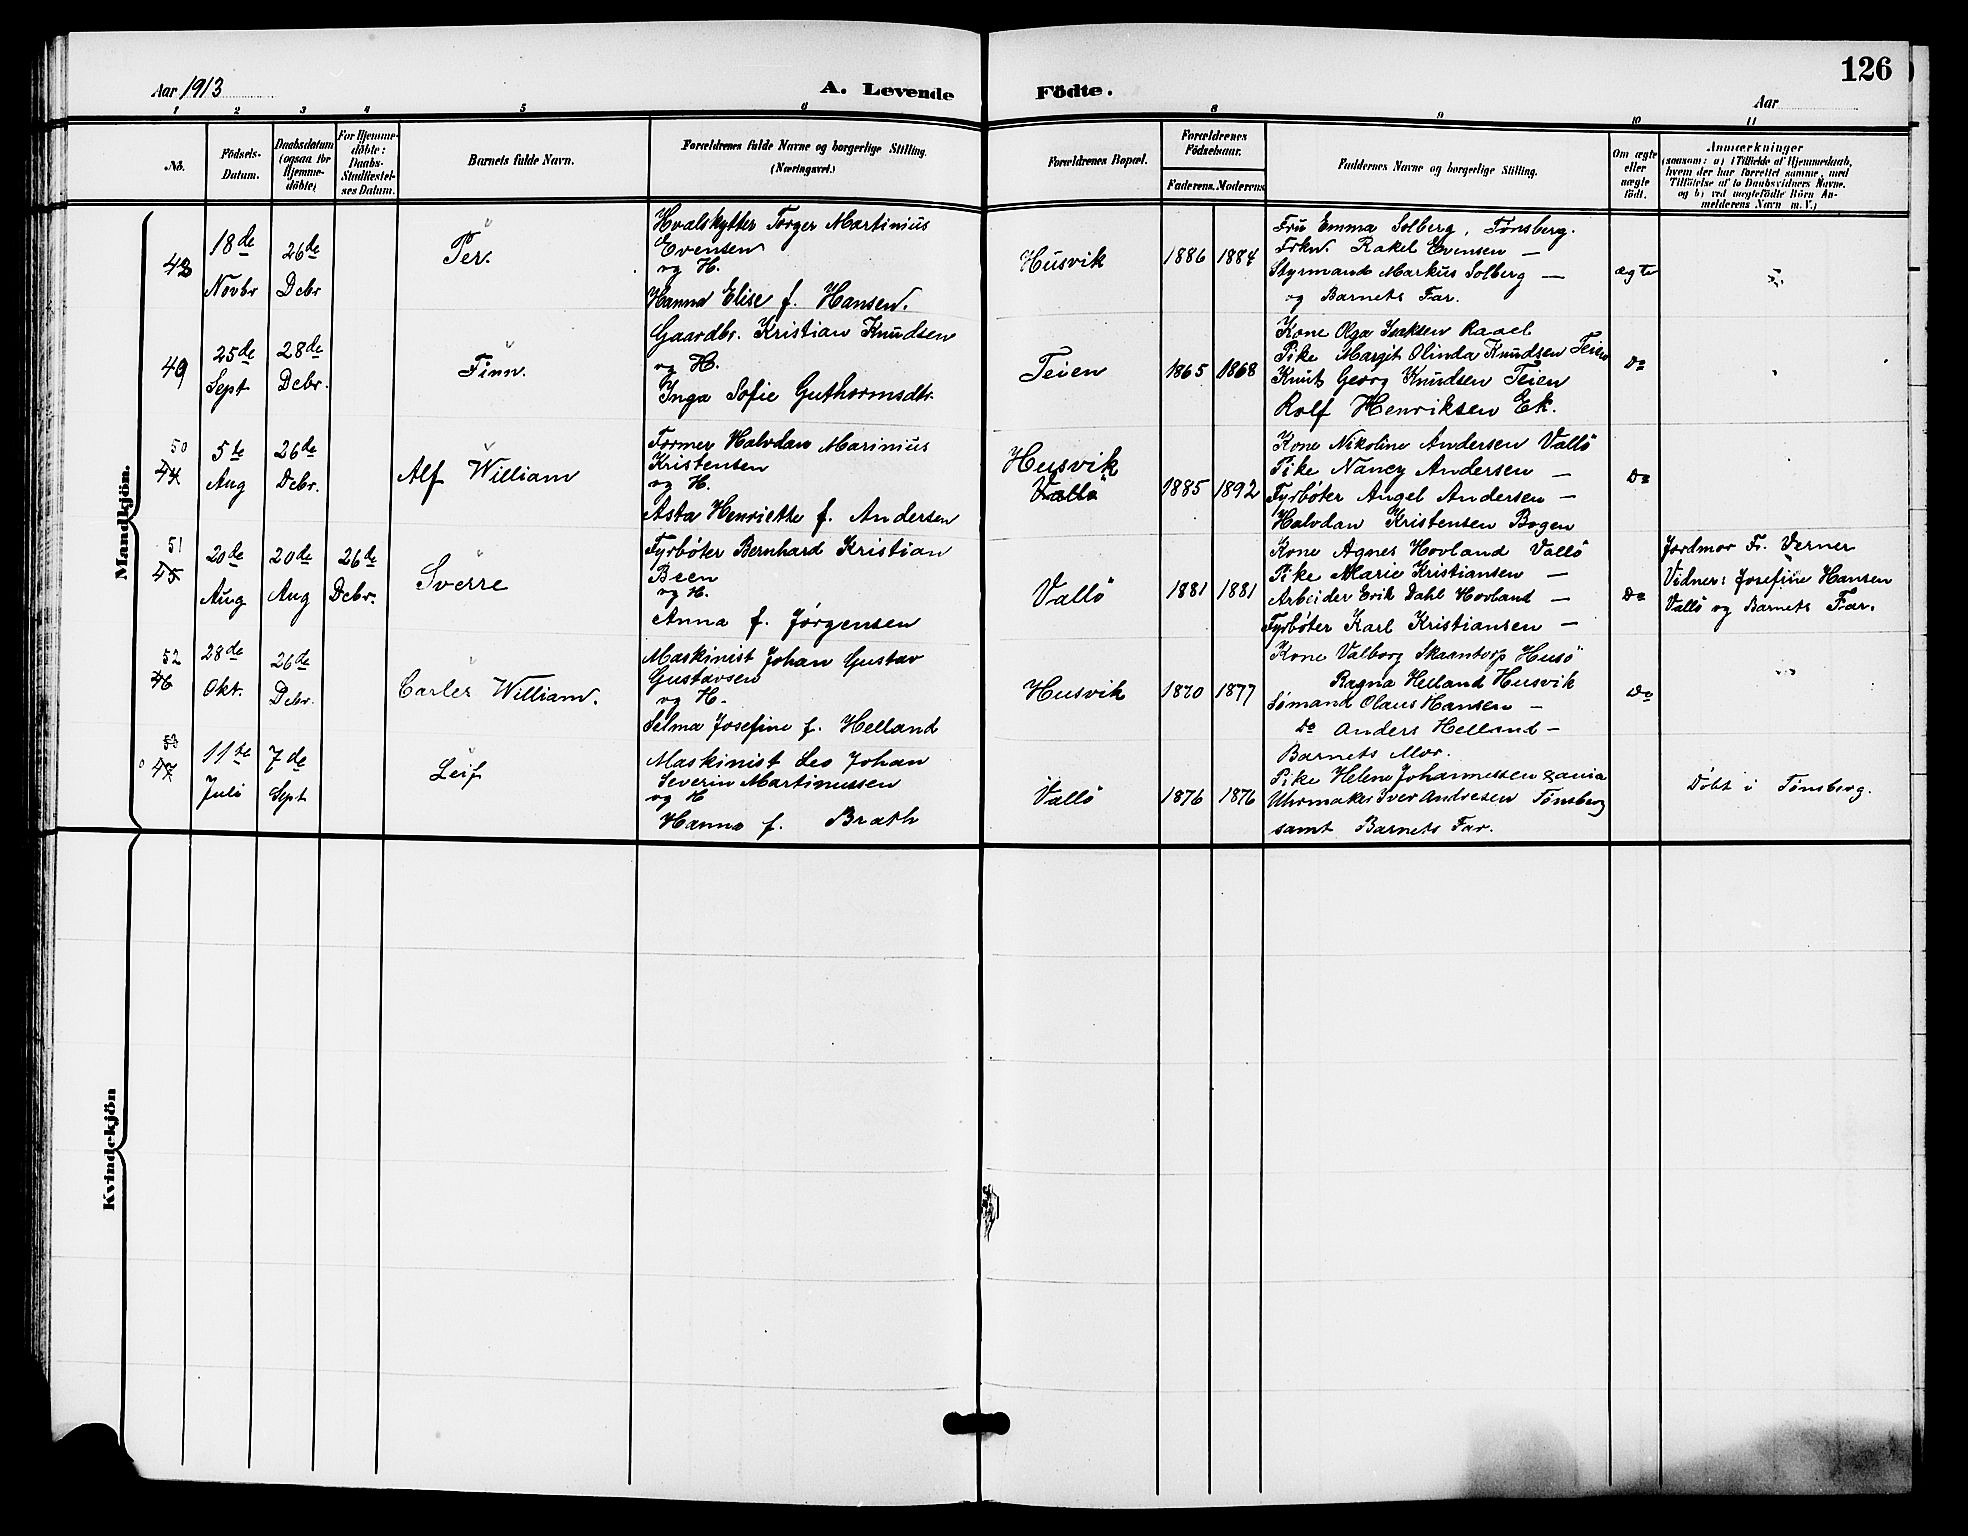 126
Aar 1913
A. Levende Födte.
Aar
1 2 3 4 5 6 8 9 10 11
No.
Födsels-Datum.
Daabsdatum (ogsaa for Hjemme-döbte)
For Hjemme-döbte: Daabs-Stadfæstel-ses Datum.
Barnets fulde Navn.
Forældrenes fulde Navne og borgerlige Stilling.
(Næringsvei.)
Forældrenes Bopæl.
Forældrenes Födselsaar.
Faderens. Moderens.
Faddernes Navne og borgerlige Stilling.
Om ægte eller uægte födt.
Anmærkninger
(saasom: a) i Tilfælde af Hjemmedaab,
hvem der har forrettet samme, med
Tilföielse af to Daabsvidners Navne.
og b) ved uægtefödte Börn An-
melderens Navn m. V.)
Mandkjön.
18de Novbr
26de Debr
Per.
Hvalskytter Torger Martinius
Evensen
og H.
Hanna Elise f. Hansen.
Husvik
1886 1884
Fru Emma Solberg, Tønsberg.
Frkn. Rakel Evensen —
Styrmand Markus Solberg —
og Barnets Far.
ægte
49
25de Sept
28de Debr.
Finn.
Gaardbr. Kristian Knudsen
og H.
Inga Sofie Guthormsdtr.
Teien
1865 1868
Kone Olga Isaksen Raael
Pike Margit Olinda Knudsen Teien
Knut Georg Knudsen Teien
Rolf Henriksen Ek.
Do
50
44
5te Aug
26de Debr.
Alf William
Former Halvdan Marinius
Kristensen
og H.
Asta Henriette f. Andersen
Husvik
Vallö
1885 1892
Kone Nikoline Andersen Vallö
Pike Nancy Andersen —
Fyrbøter Angel Andersen —
Halvdan Kristensen Bogen
Do
51
45
20de Aug
20de Aug
26de Debr.
Sverre
Fyrbøter Bernhard Kristian
Been
og H.
Anna f. Jørgensen
Vallö
1881 1881
Kone Agnes Hovland Vallö
Pike Marie Kristiansen —
Arbeider Erik Dahl Hovland —
Fyrbøter Karl Kristiansen —
Do
Jordmor Fr. Verner
Vidner: Josefine Hansen
Vallö og Barnets Far.
52
46
28de Okt.
26de Debr.
Carler William.
Maskinist Johan Gustav
Gustavsen
og H.
Selma Josefine f. Helland
Husvik
1870 1877
Kone Valborg Skarntorp Husö
Ragna Helland Husvik
Sømand Olaus Hansen —
Do Anders Helland —
Do
53
47
11te Juli
7de Sept
Leif
Maskinist Leo Johan
Severin Martinussen
og H
Hanna f. Brath
Vallö
1876 1876
Barnets Mor.
Pike Helene Johannessen
Uhrmaker Iver Andresen Tønsberg
samt Barnets Far.
Döbt i Tønsberg.
Kvindekjön